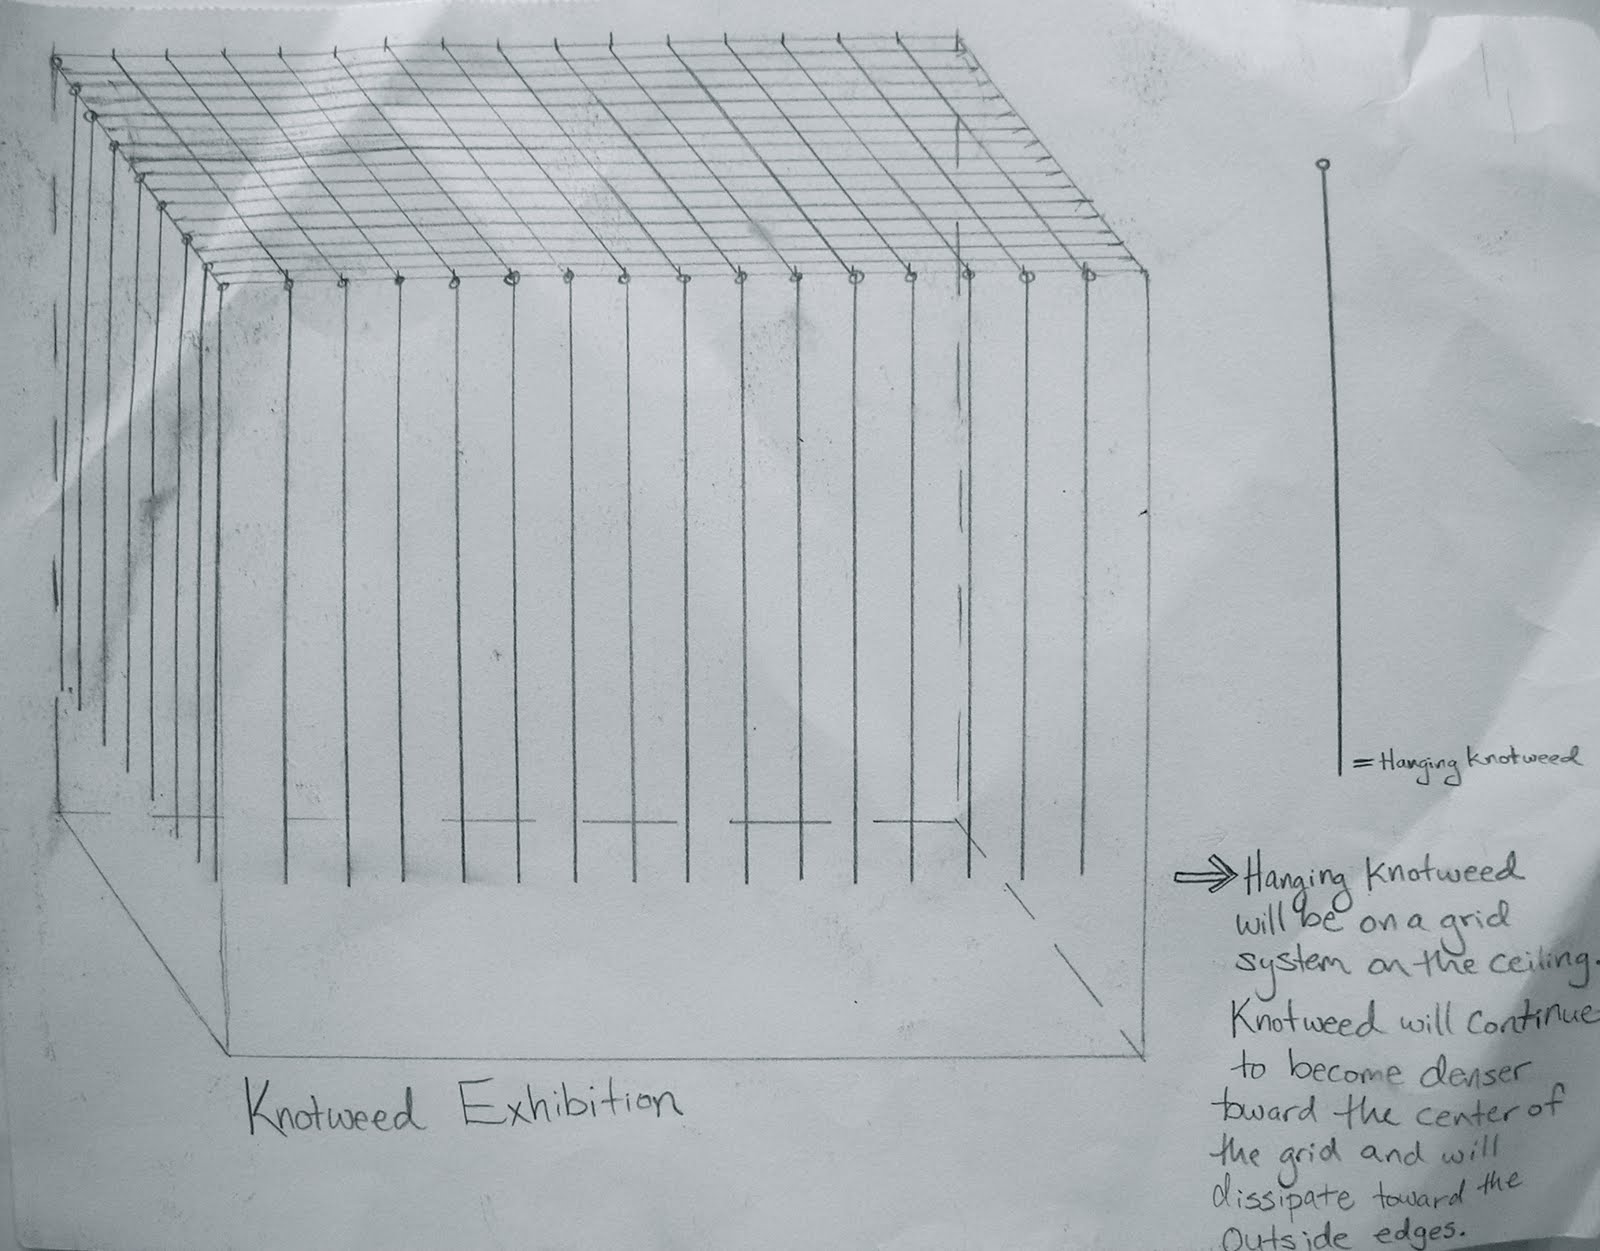 = Hanging Knotweed
Hanging Knotweed
will be on a grid
system on the ceiling.
Knotweed will continue
to become denser
toward the center of
the grid and will
dissipate toward the
outside edges.
Knotweed Exhibition